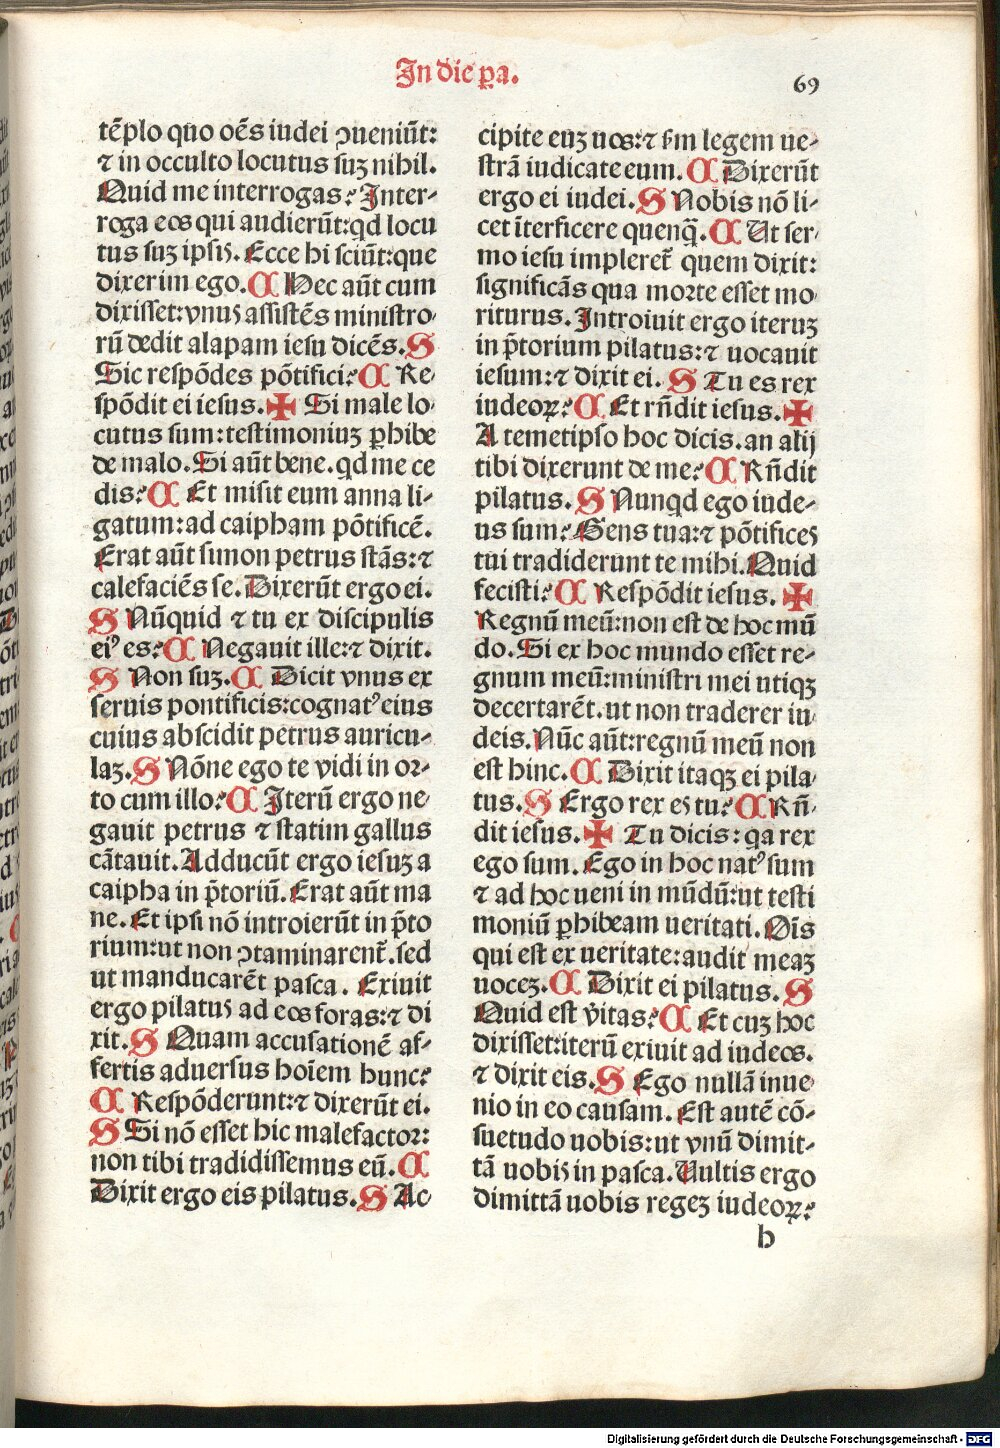 In die pa.
69
tẽplo quo oẽs iudei ꝯueniũt:
⁊ in occulto locutus suꝫ nihil.
Quid me interrogas? Inter-
roga eos qui audierũt: qd locu
tus suꝫ ipsis. Ecce hi sciũt: que
dixerim ego. C Hec aũt cum
dixisset: vnus assistẽs ministro-
rũ dedit alapam iesu dicẽs. S
Sic respõdes põtifici? C Re-
spõdit ei iesus. ✠ Si male lo-
cutus sum: testimoniuꝫ ꝑhibe
de malo. Si aũt bene. qd me ce
dis? C Et misit eum anna li-
gatum: ad caipham põtificẽ.
Erat aũt simon petrus stãs: ⁊
calefaciẽs se. Dixerũt ergo ei.
S Nũquid ⁊ tu ex discipulis
eiꝰ es? C Negauit ille: ⁊ dixit.
S Non suꝫ. C Dicit vnus ex
seruis pontificis: cognatꝰ eius
cuius abscidit petrus auricu-
laꝫ. S Nõne ego te vidi in or-
to cum illo? C Iterũ ergo ne-
gauit petrus ⁊ statim gallus
cãtauit. Adducũt ergo iesuꝫ a
caipha in p̃toriũ. Erat aũt ma
ne. Et ipsi nõ introierũt in p̃to
rium: ut non ꝯtaminarent̃. sed
ut manducarẽt pasca. Exiuit
ergo pilatus ad eos foras: ⁊ di
xit. S Quam accusationẽ af-
fertis aduersus hoĩem hunc?
C Respõderunt: ⁊ dixerũt ei.
S Si nõ esset hic malefactor:
non tibi tradidissemus eũ. C
Dixit ergo eis pilatus. S Ac
cipite euꝫ uos: ⁊ s̃m legem ue-
strã iudicate eum. C Dixerũt
ergo ei iudei. S Nobis nõ li-
cet ĩterficere quenq̃. C Ut ser-
mo iesu impleret̃ quem dixit:
significãs qua morte esset mo-
riturus. Introiuit ergo iteruꝫ
in p̃torium pilatus: ⁊ uocauit
iesum: ⁊ dixit ei. S Tu es rex
iudeoꝝ? C Et rñdit iesus. ✠
A temetipso hoc dicis. an alij
tibi dixerunt de me? C Rñdit
pilatus. S Nunqd ego iude-
us sum? Gens tua: ⁊ põtifices
tui tradiderunt te mihi. Quid
fecisti? C Respõdit iesus. ✠
Regnũ meũ: non est de hoc mũ
do. Si ex hoc mundo esset re-
gnum meũ: ministri mei utiqꝫ
decertarẽt. ut non traderer iu-
deis. Nũc aũt: regnũ meũ non
est hinc. C Dixit itaqꝫ ei pila-
tus. S Ergo rex es tu? C Rñ-
dit iesus. ✠ Tu dicis: qa rex
ego sum. Ego in hoc natꝰ sum
⁊ ad hoc ueni in mũdũ: ut testi
moniũ ꝑhibeam ueritati. Oĩs
qui est ex ueritate: audit meaꝫ
uoceꝫ. C Dixit ei pilatus. S
Quid est ṽitas? C Et cuꝫ hoc
dixisset: iterũ exiuit ad iudeos.
⁊ dixit eis. S Ego nullã inue-
nio in eo causam. Est autẽ cõ-
suetudo uobis: ut vnũ dimit-
tã uobis in pasca. Uultis ergo
dimittã uobis regeꝫ iudeoꝝ?
h
Digitalisierung gefördert durch die Deutsche Forschungsgemeinschaft - DFG